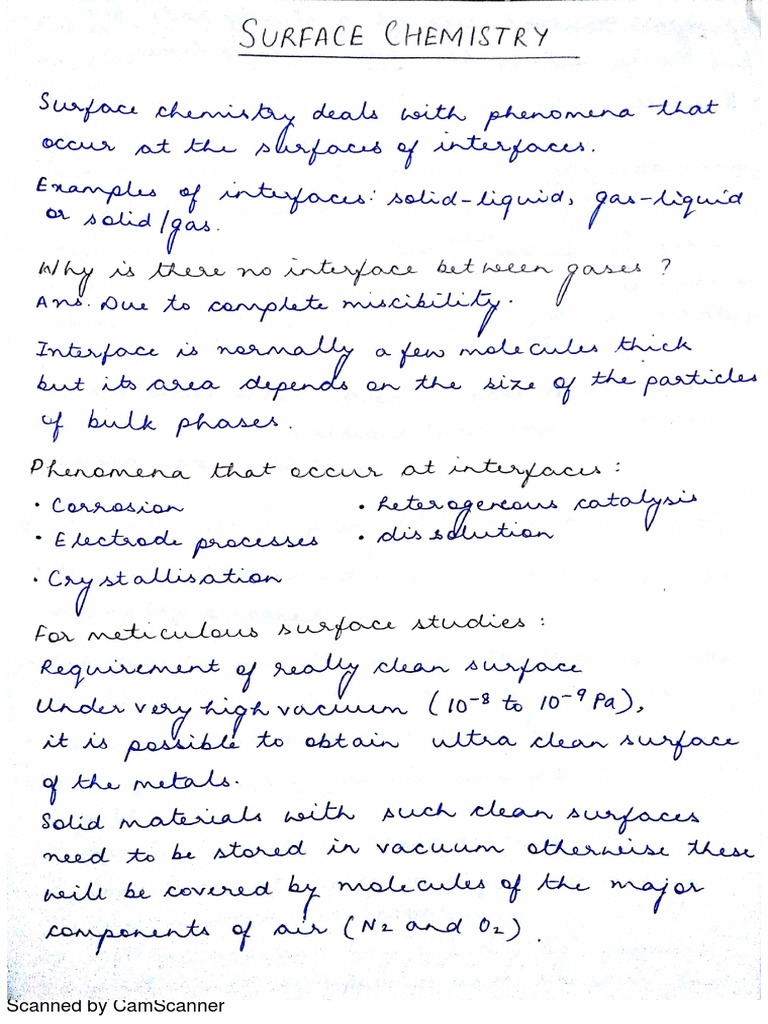 SURFACE CHEMISTRY
Surface chemistry deals with phenomena that
occur at the surfaces of interfaces.
Examples of interfaces: solid-liquid, gas-liquid
or solid/gas.
Why is there no interface between gases ?
Ans. Due to complete miscibility.
Interface is normally a few molecules thick
but its area depends on the size of the particles
of bulk phases.
Phenomena that occur at interfaces :
• Corrosion • heterogeneous catalysis
• Electrode processes • dissolution
• Crystallisation
For meticulous surface studies :
Requirement of really clean surface
Under very high vacuum (10⁻⁸ to 10⁻⁹ Pa),
it is possible to obtain ultra clean surface
of the metals.
Solid materials with such clean surfaces
need to be stored in vacuum otherwise these
will be covered by molecules of the major
components of air (N₂ and O₂).
Scanned by CamScanner